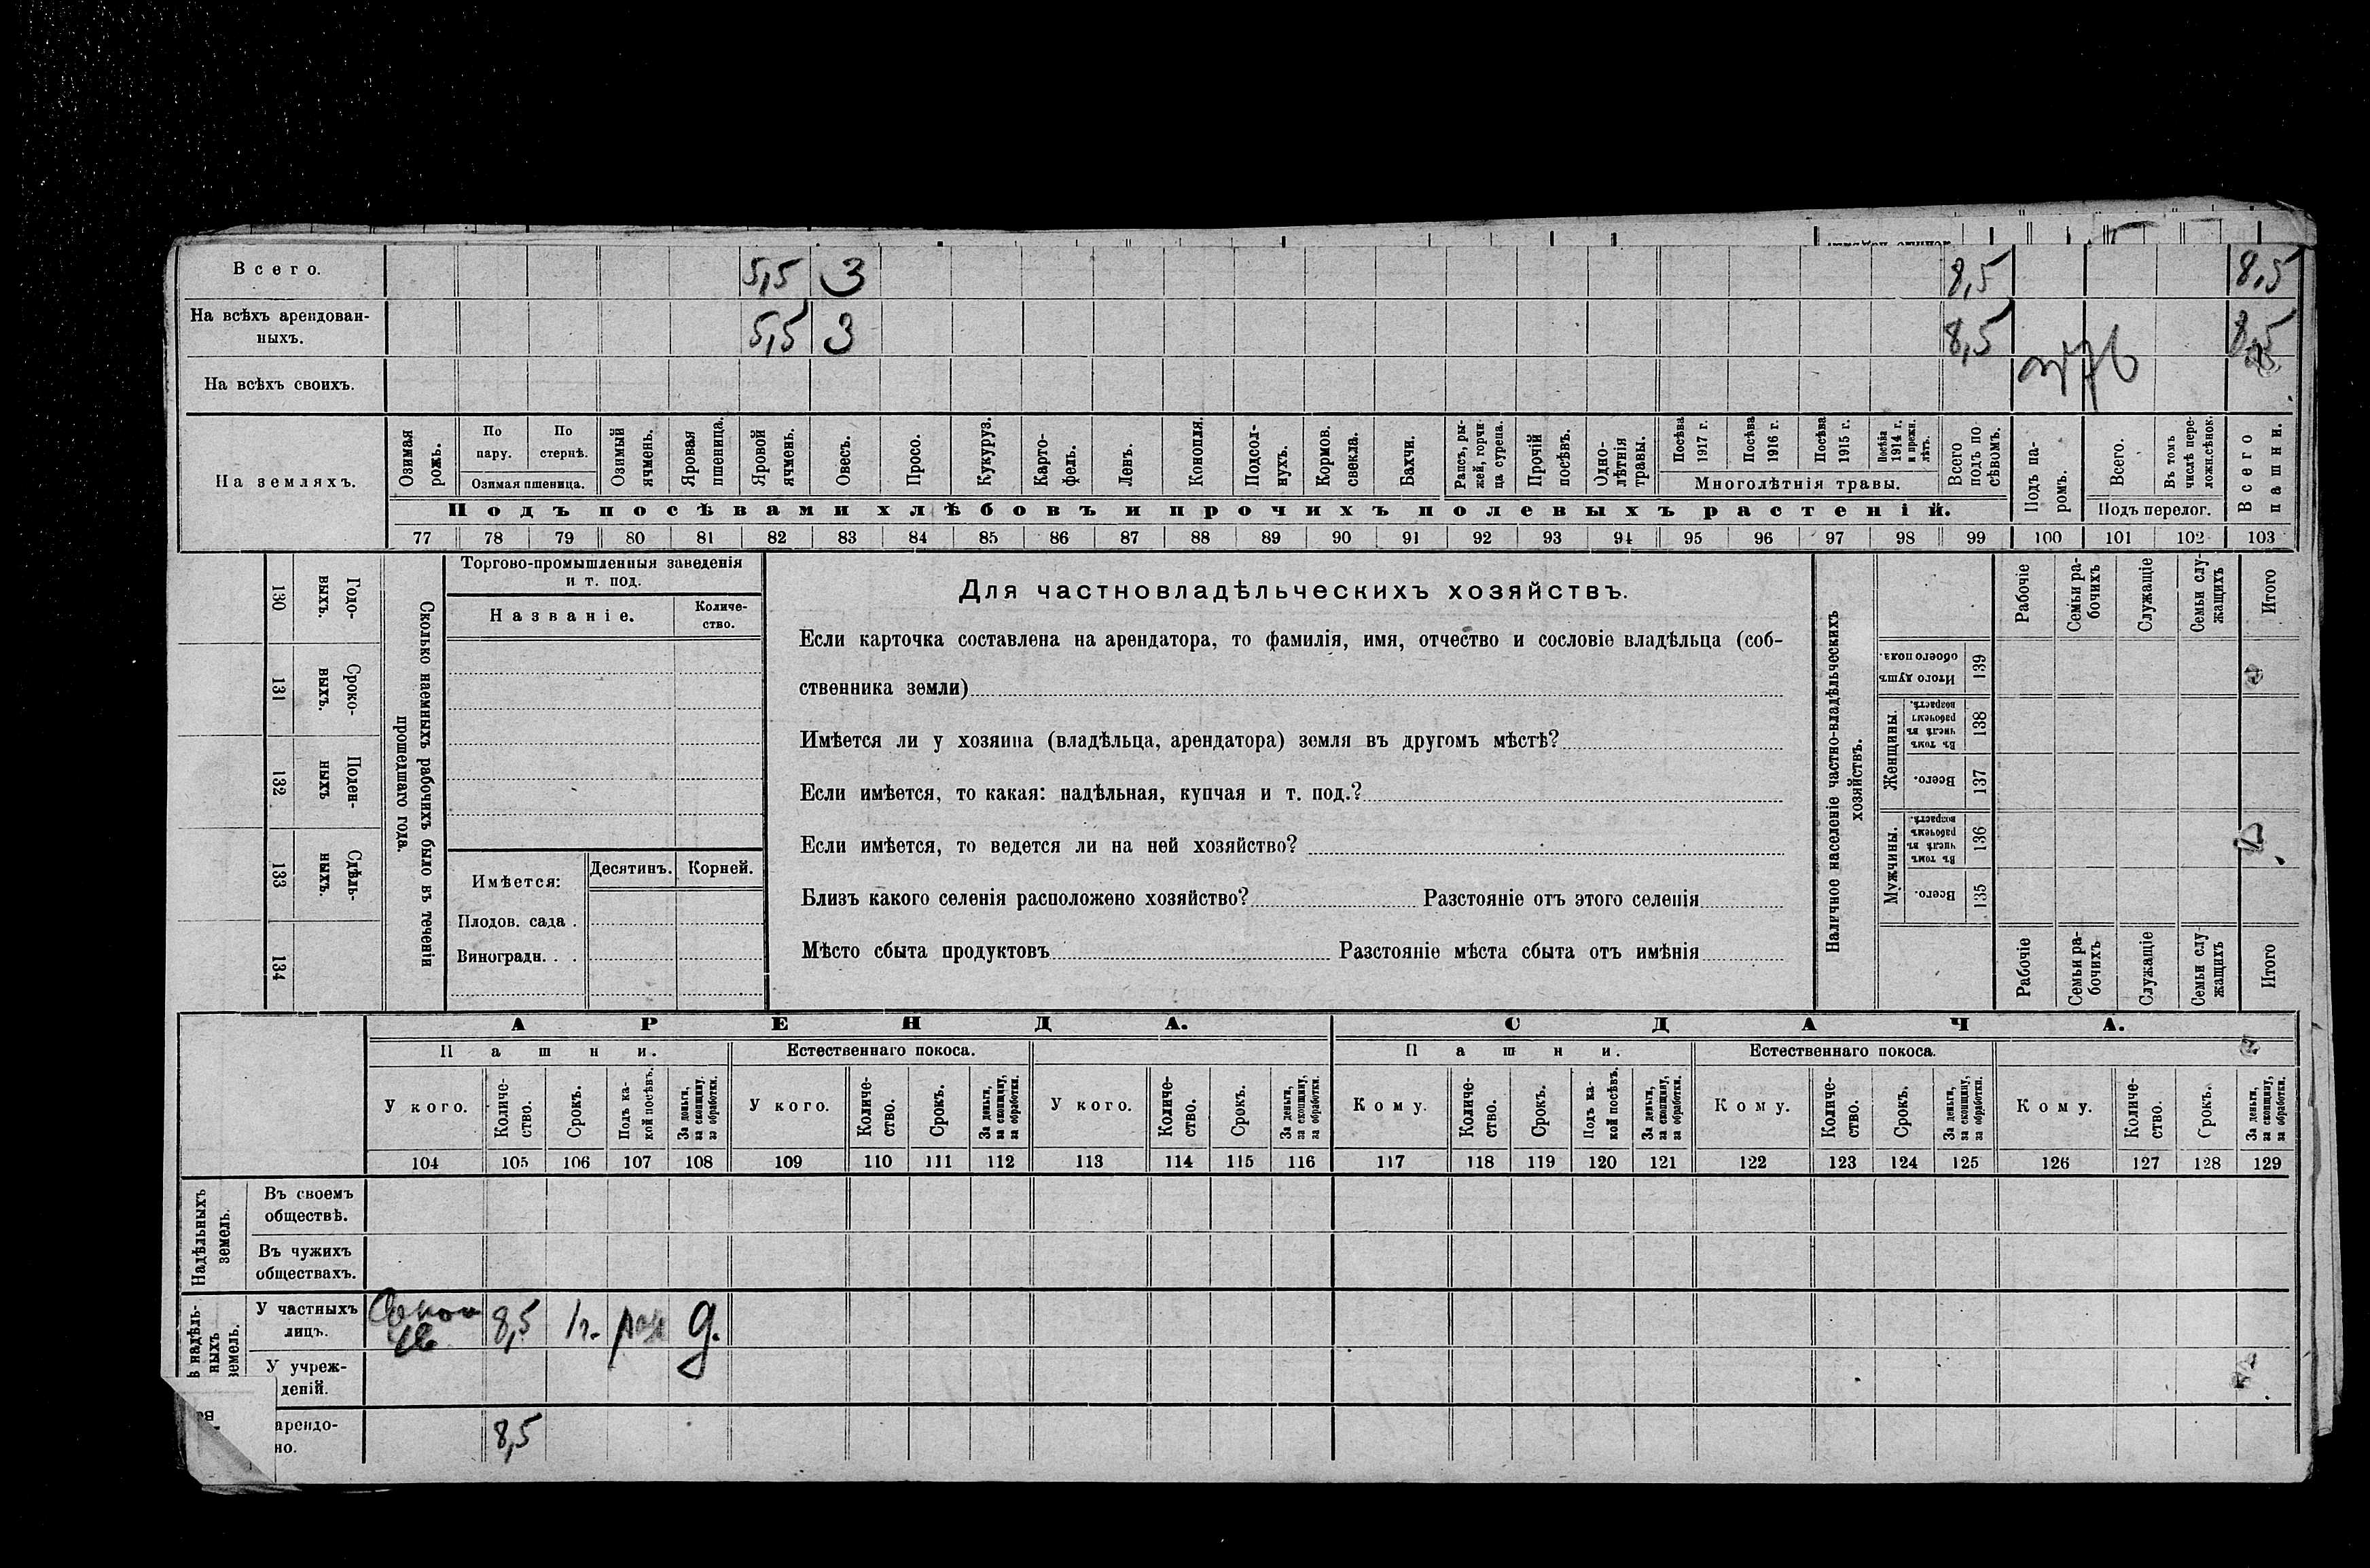 Всего. 5,5 3 8,5 8,5
На всѣхъ арендован-
ныхъ. 5,5 3 8,5 8,5
На всѣхъ своихъ.
На земляхъ.
Озимая рожь.
По пару.
По стернѣ.
Озимая пшеница.
Озимый ячмень.
Яровая пшеница.
Яровой ячмень.
Овесъ.
Просо.
Кукуруз.
Карто-
фель.
Ленъ.
Конопля.
Подсол-
нухъ.
Кормов.
свекла.
Бахчи.
Рапсъ, ры-
жей, горчи-
ца сурепа.
Прочій посѣвъ.
Одно-
лѣтнія
травы.
Посѣва 1917 г.
Посѣва 1916 г.
Посѣва 1915 г.
Посѣва
1914 г.
и прежн.
лѣтъ.
Многолѣтнія травы.
Всего
подъ по-
сѣвомъ.
Подъ па-
ромъ.
Всего.
Въ томъ
числѣ пере-
ложн.сѣнок.
Подъ перелог.
Всего
пашни.
Подъ посѣвами хлѣбовъ и прочихъ полевыхъ растеній.
77 78 79 80 81 82 83 84 85 86 87 88 89 90 91 92 93 94 95 96 97 98 99 100 101 102 103
130 Годо-
выхъ.
131 Сроко-
выхъ.
132 Поден-
ныхъ
133 Сдѣль-
ныхъ.
134
Сколько наемныхъ рабочихъ было въ теченіи
прошедшаго года.
Торгово-промышленныя заведенія
и т. под.
Названіе.
Количе-
ство.
Имѣется: Десятинъ. Корней.
Плодов. сада .
Виноградн. . .
Для частновладѣльческихъ хозяйствъ.
Если карточка составлена на арендатора, то фамилія, имя, отчество и сословіе владѣльца (соб-
ственника земли)
Имѣется ли у хозяина (владѣльца, арендатора) земля въ другомъ мѣстѣ?
Если имѣется, то какая: надѣльная, купчая и т. под.?
Если имѣется, то ведется ли на ней хозяйство?
Близъ какого селенія расположено хозяйство? Разстояніе отъ этого селенія
Мѣсто сбыта продуктовъ Разстояніе мѣста сбыта отъ имѣнія
Наличное населеніе частно-владѣльческихъ
хозяйствъ.
Рабочіе
Семьи ра-
бочихъ
Служащіе
Семьи слу-
жащихъ
Итого
Итого душъ
обоего пола. 139
Женщины.
Въ томъ
числѣ въ
рабочемъ
возрастѣ. 138
Всего. 137
Мужчины.
Въ томъ
числѣ въ
рабочемъ
возрастѣ. 136
Всего. 135
Рабочіе
Семьи ра-
бочихъ
Служащіе
Семьи слу-
жащихъ
Итого
АРЕНДА. СДАЧА.
Пашни. Естественнаго покоса. Пашни. Естественнаго покоса.
У кого.
Количе-
ство.
Срокъ.
Подъ ка-
кой посѣвъ.
За деньги,
за скопщину,
за обработки.
У кого.
Количе-
ство.
Срокъ.
За деньги,
за скопщину,
за обработки.
У кого.
Количе-
ство.
Срокъ.
За деньги,
за скопщину,
за обработки.
Кому.
Количе-
ство.
Срокъ.
Подъ ка-
кой посѣвъ.
За деньги,
за скопщину,
за обработки.
Кому.
Количе-
ство.
Срокъ.
За деньги,
за скопщину,
за обработки.
Кому.
Количе-
ство.
Срокъ.
За деньги,
за скопщину,
за обработки.
104 105 106 107 108 109 110 111 112 113 114 115 116 117 118 119 120 121 122 123 124 125 126 127 128 129
Надѣльныхъ
земель.
Въ своемъ
обществѣ.
Въ чужихъ
обществахъ.
надѣль-
ныхъ
земель.
У частныхъ
лицъ. 8,5 1г. д.
У учреж-
деній.
арендо-
но. 8,5